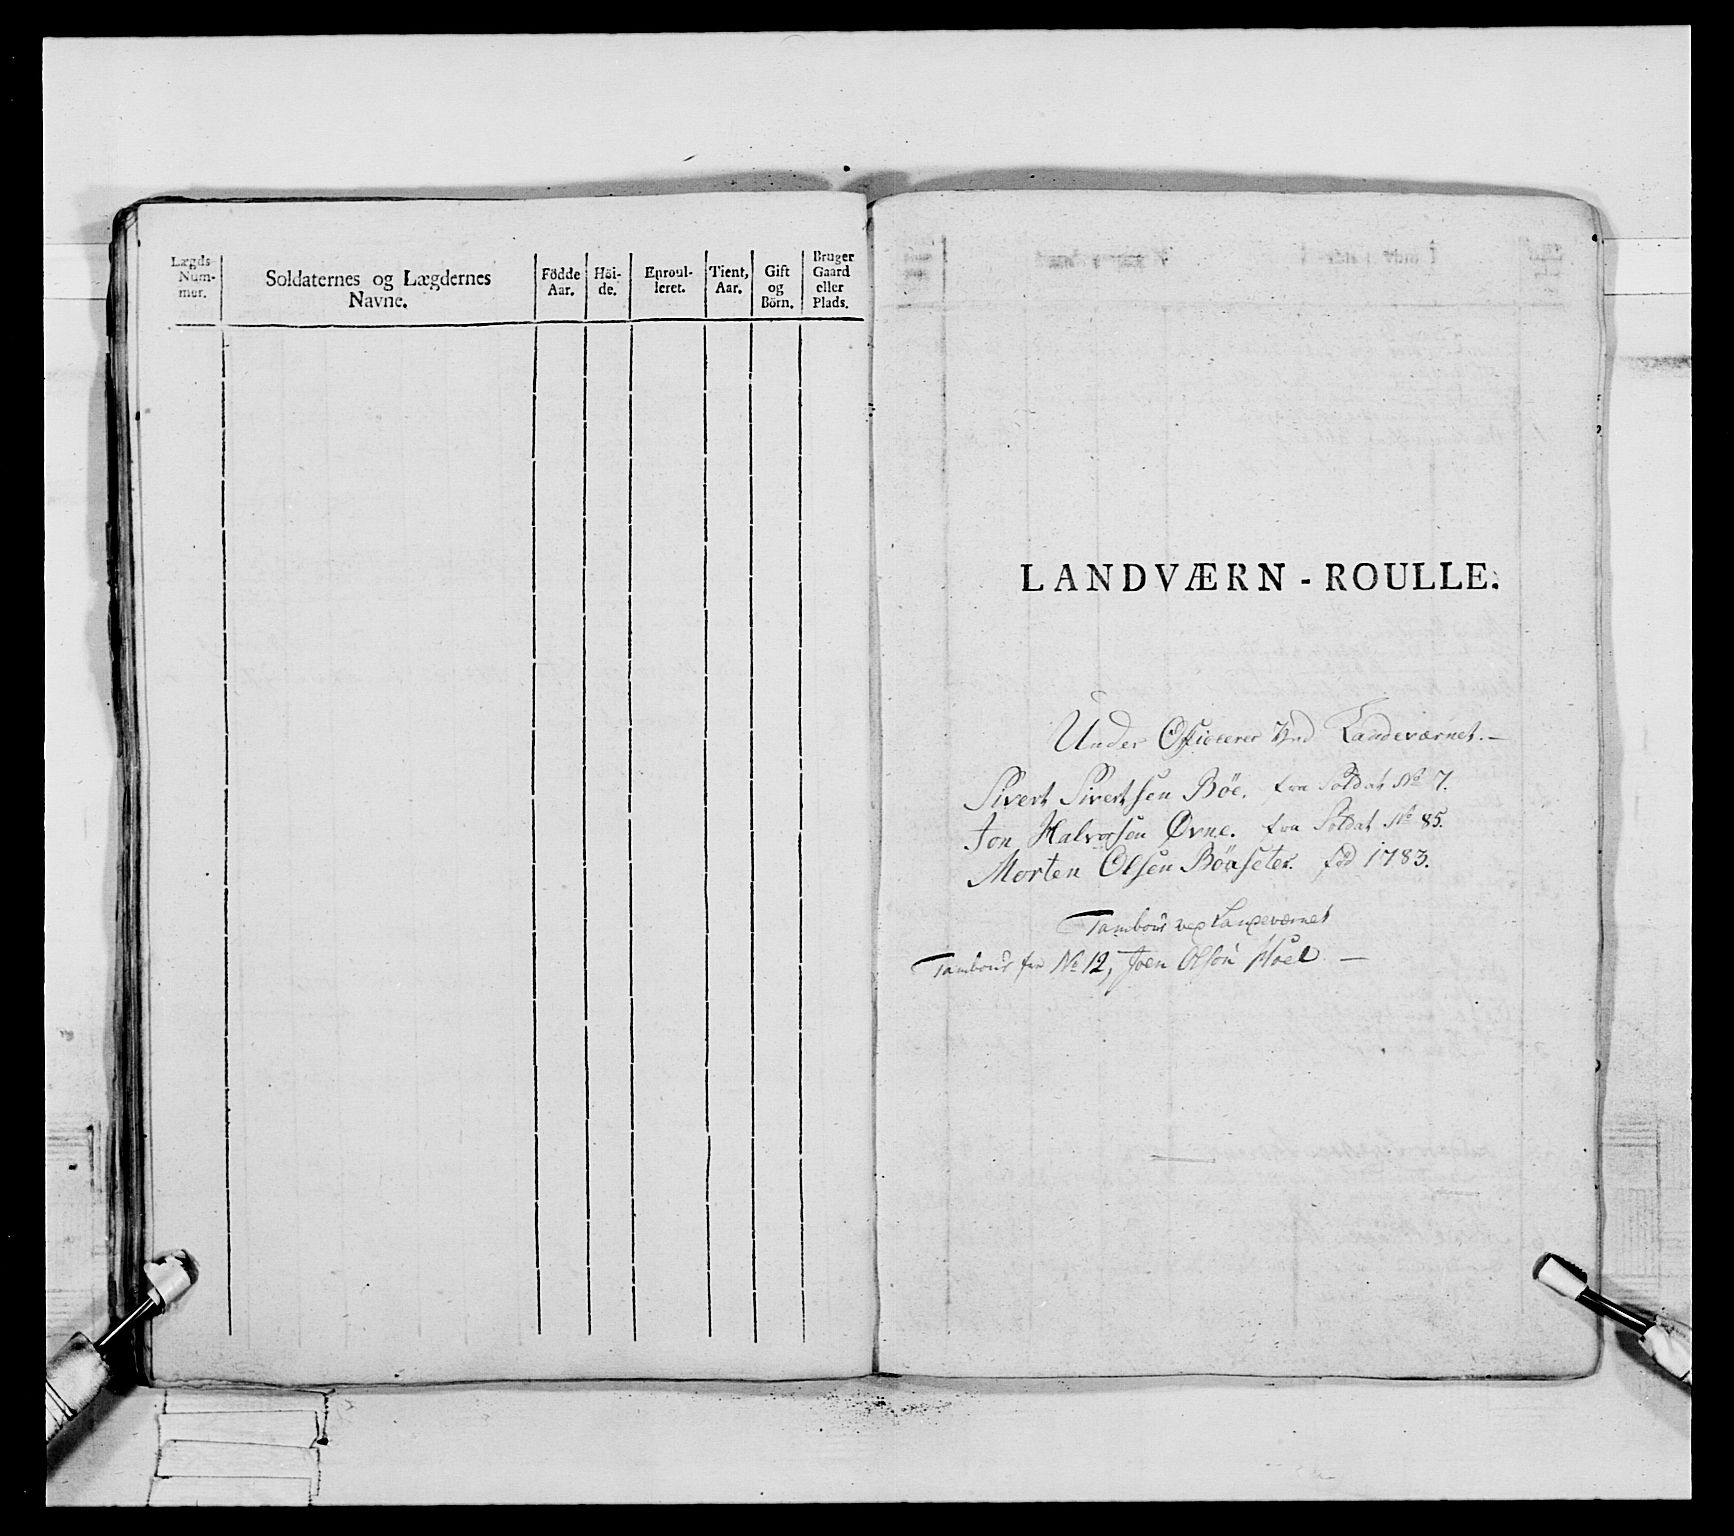 Lægds-
Num-
mer.
Soldaternes og Lægdernes
Navne.
Födde
Aar.
Höi-
de.
Enroul-
leret.
Tient,
Aar.
Gift
og
Börn.
Bruger
Gaard
eller
Plads.
LANDVÆRN - ROULLE.
Under Officerer ved Landeværnet. —
Sivert Sivertsen Böe. fra Soldat No 7.
Jon Halvorsen Øvne. fra Soldat No 85.
Morten Olsen Böeseter. föd 1783.
Tambour ved Landeværnet
Tambour fra No 12, Joen Olsön Moel —